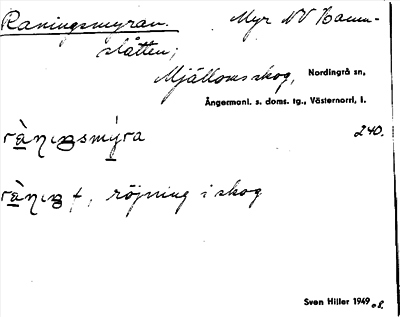 Raningsmyran. Myr NV Hamn-
slåtten;
Mjällomsskog, Nordingrå sn,
Ångermanl. s. doms. tg., Västernorrl. l.
240.
röjning i skog
Sven Hiller 1949